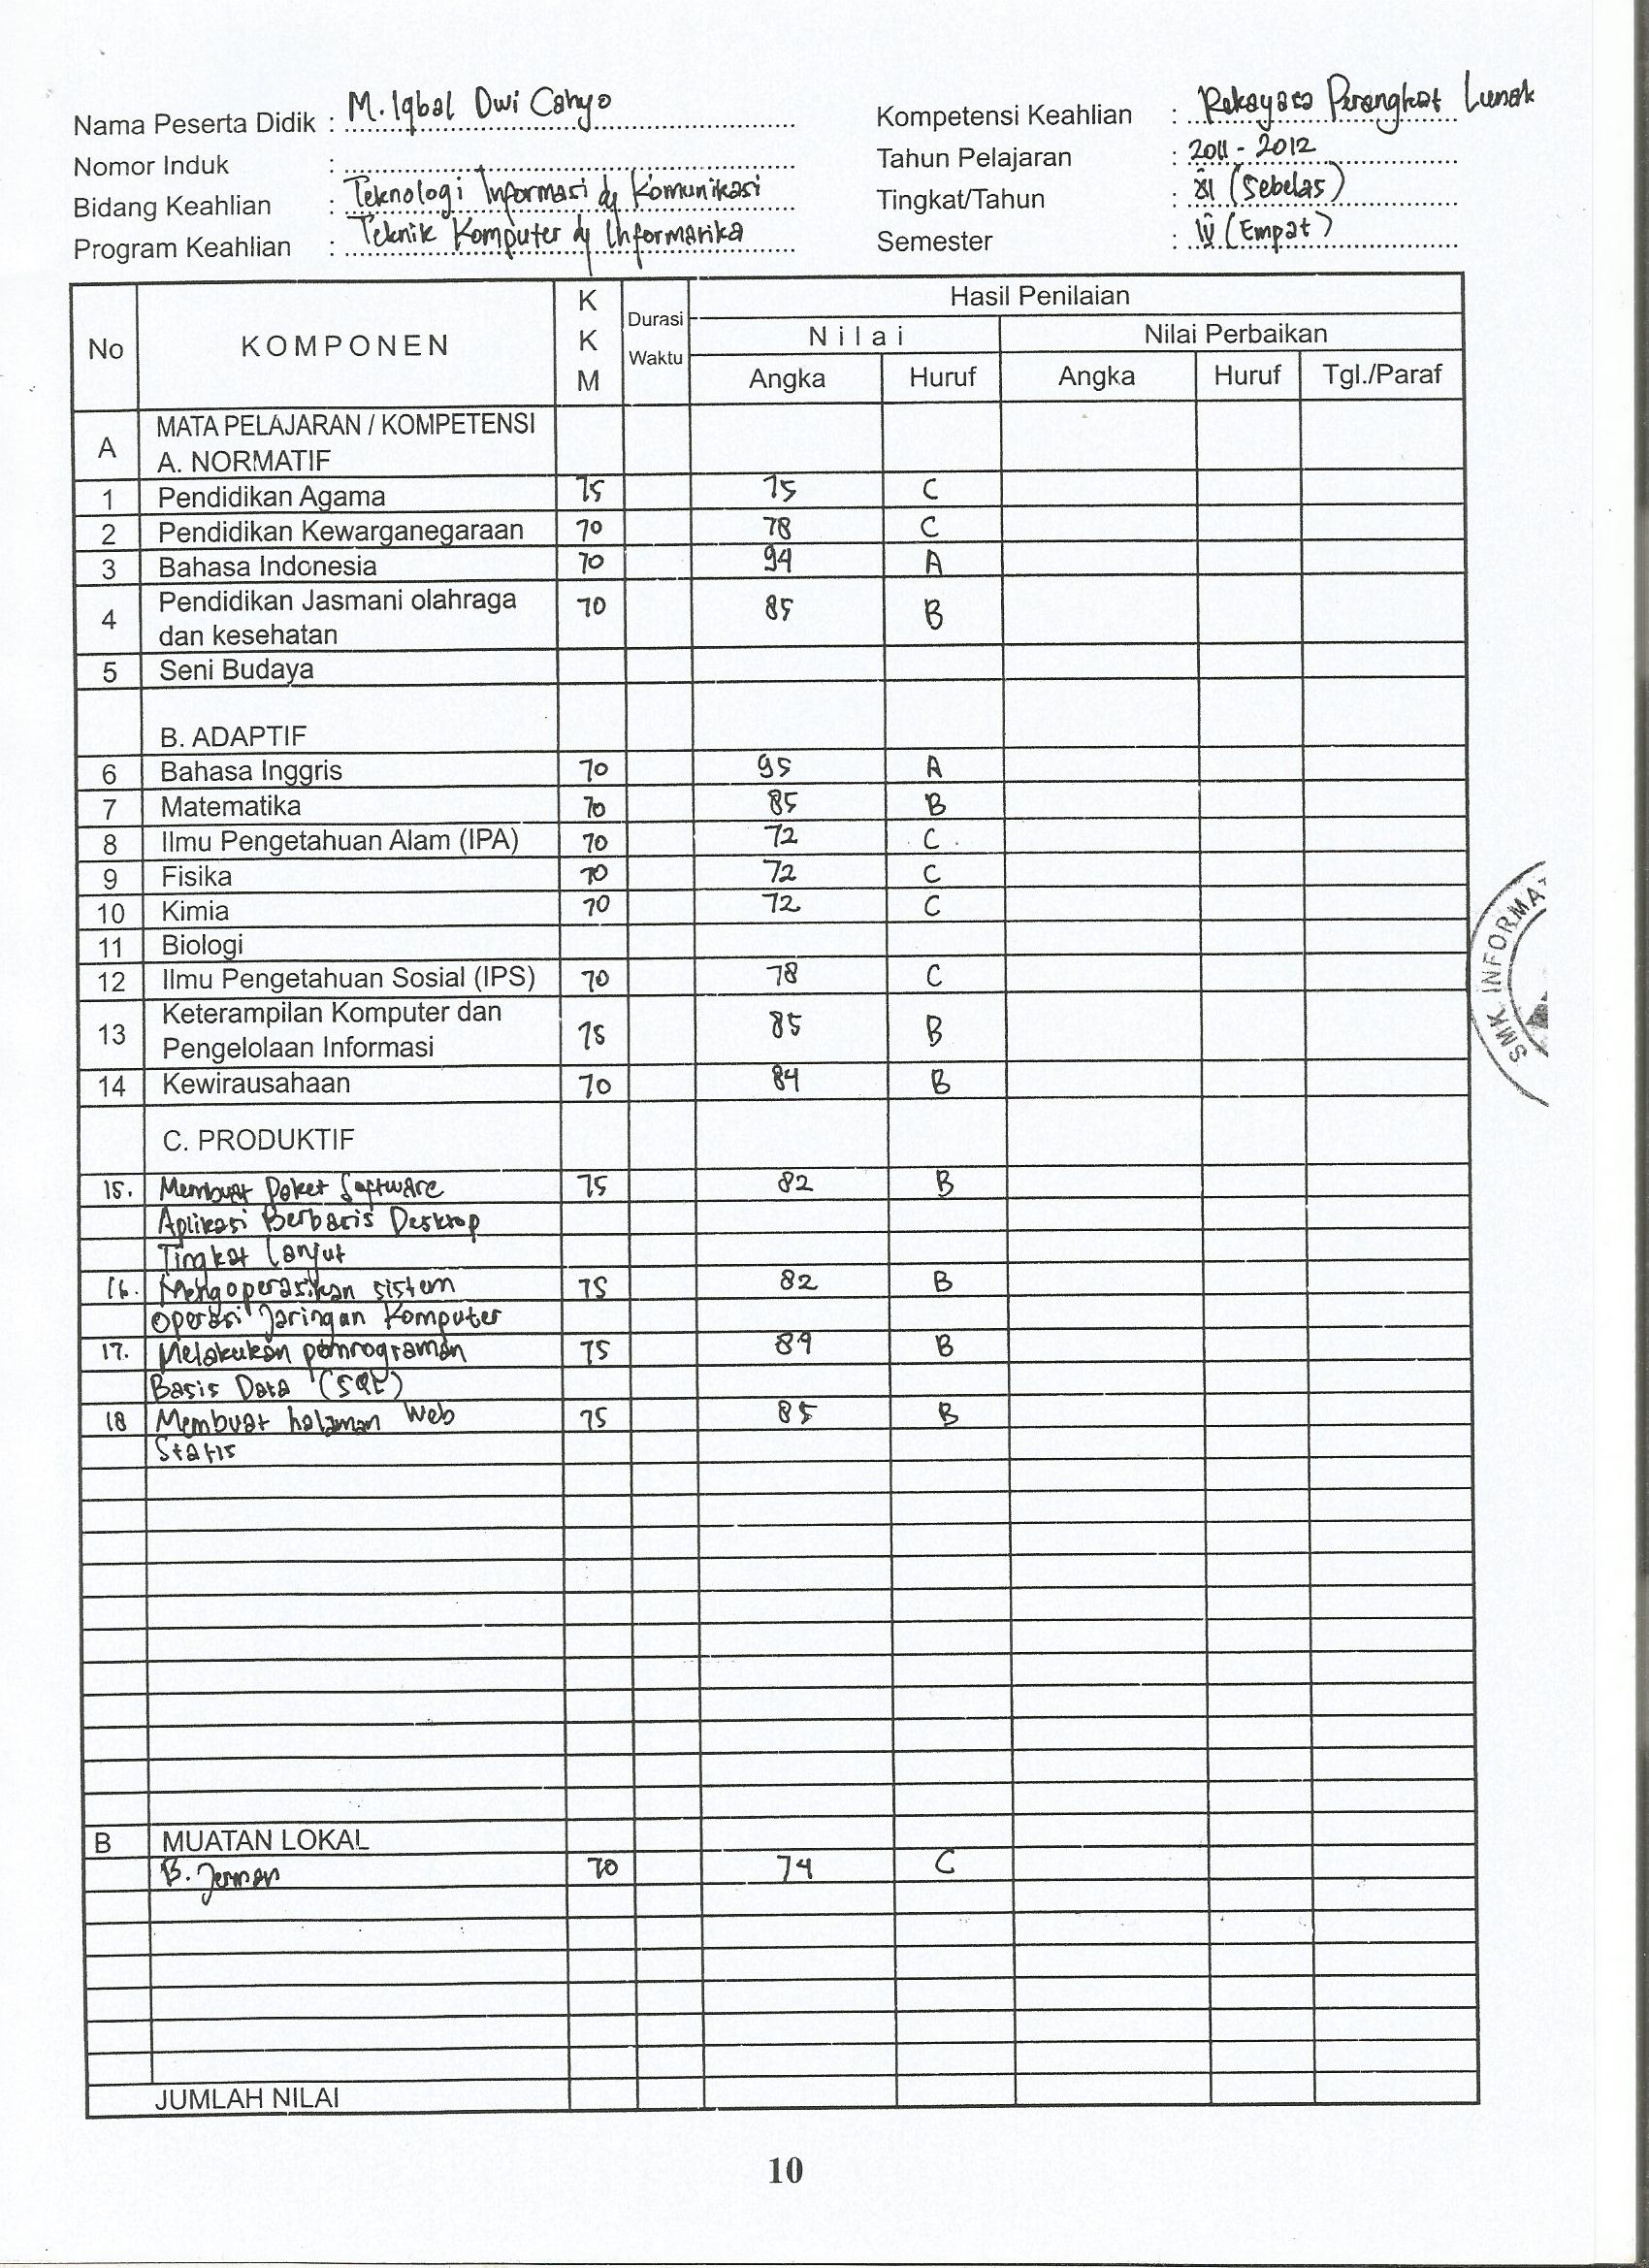 Nama Peserta Didik : M. Iqbal Dwi Cahyo
Nomor Induk :
Bidang Keahlian : Teknologi Informasi dg Komunikasi
Program Keahlian : Teknik Komputer dg Informatika
Kompetensi Keahlian : Rekayasa Perangkat Lunak
Tahun Pelajaran : 2011 - 2012
Tingkat/Tahun : XI (Sebelas)
Semester : IV (Empat)
No KOMPONEN KKM Durasi Waktu Hasil Penilaian
Nilai Nilai Perbaikan
Angka Huruf Angka Huruf Tgl./Paraf
A MATA PELAJARAN / KOMPETENSI
A. NORMATIF
1 Pendidikan Agama 75 75 C
2 Pendidikan Kewarganegaraan 70 78 C
3 Bahasa Indonesia 70 94 A
4 Pendidikan Jasmani olahraga 70 85 B
dan kesehatan
5 Seni Budaya
B. ADAPTIF
6 Bahasa Inggris 70 95 A
7 Matematika 70 85 B
8 Ilmu Pengetahuan Alam (IPA) 70 72 C
9 Fisika 70 72 C
10 Kimia 70 72 C
11 Biologi
12 Ilmu Pengetahuan Sosial (IPS) 70 78 C
13 Keterampilan Komputer dan 75 85 B
Pengelolaan Informasi
14 Kewirausahaan 70 84 B
C. PRODUKTIF
15. Membuat Paket Software 75 82 B
Aplikasi Berbasis Desktop
Tingkat Lanjut
16. Mengoperasikan sistem 75 82 B
operasi Jaringan Komputer
17. Melakukan pemrograman 75 89 B
Basis Data (SQL)
18 Membuat halaman Web 75 85 B
Statis
B MUATAN LOKAL
B. Jerman 70 74 C
JUMLAH NILAI
10
SMK INFORMA